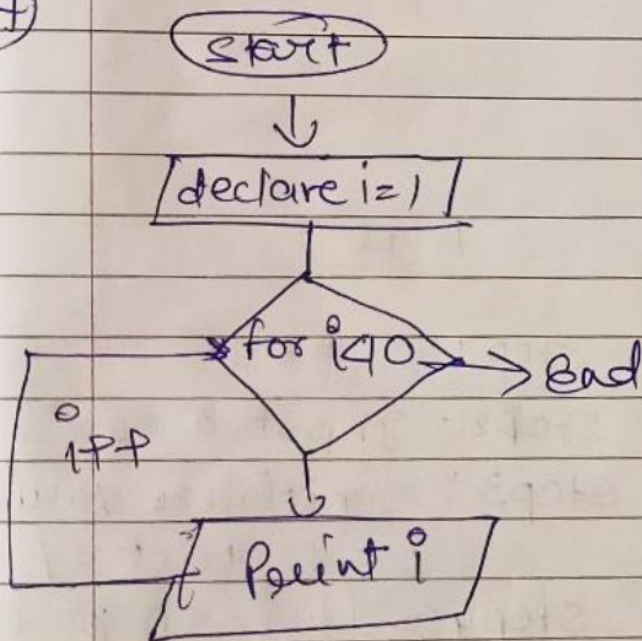 start
declare i=1
for i<10
End
i++
Print i